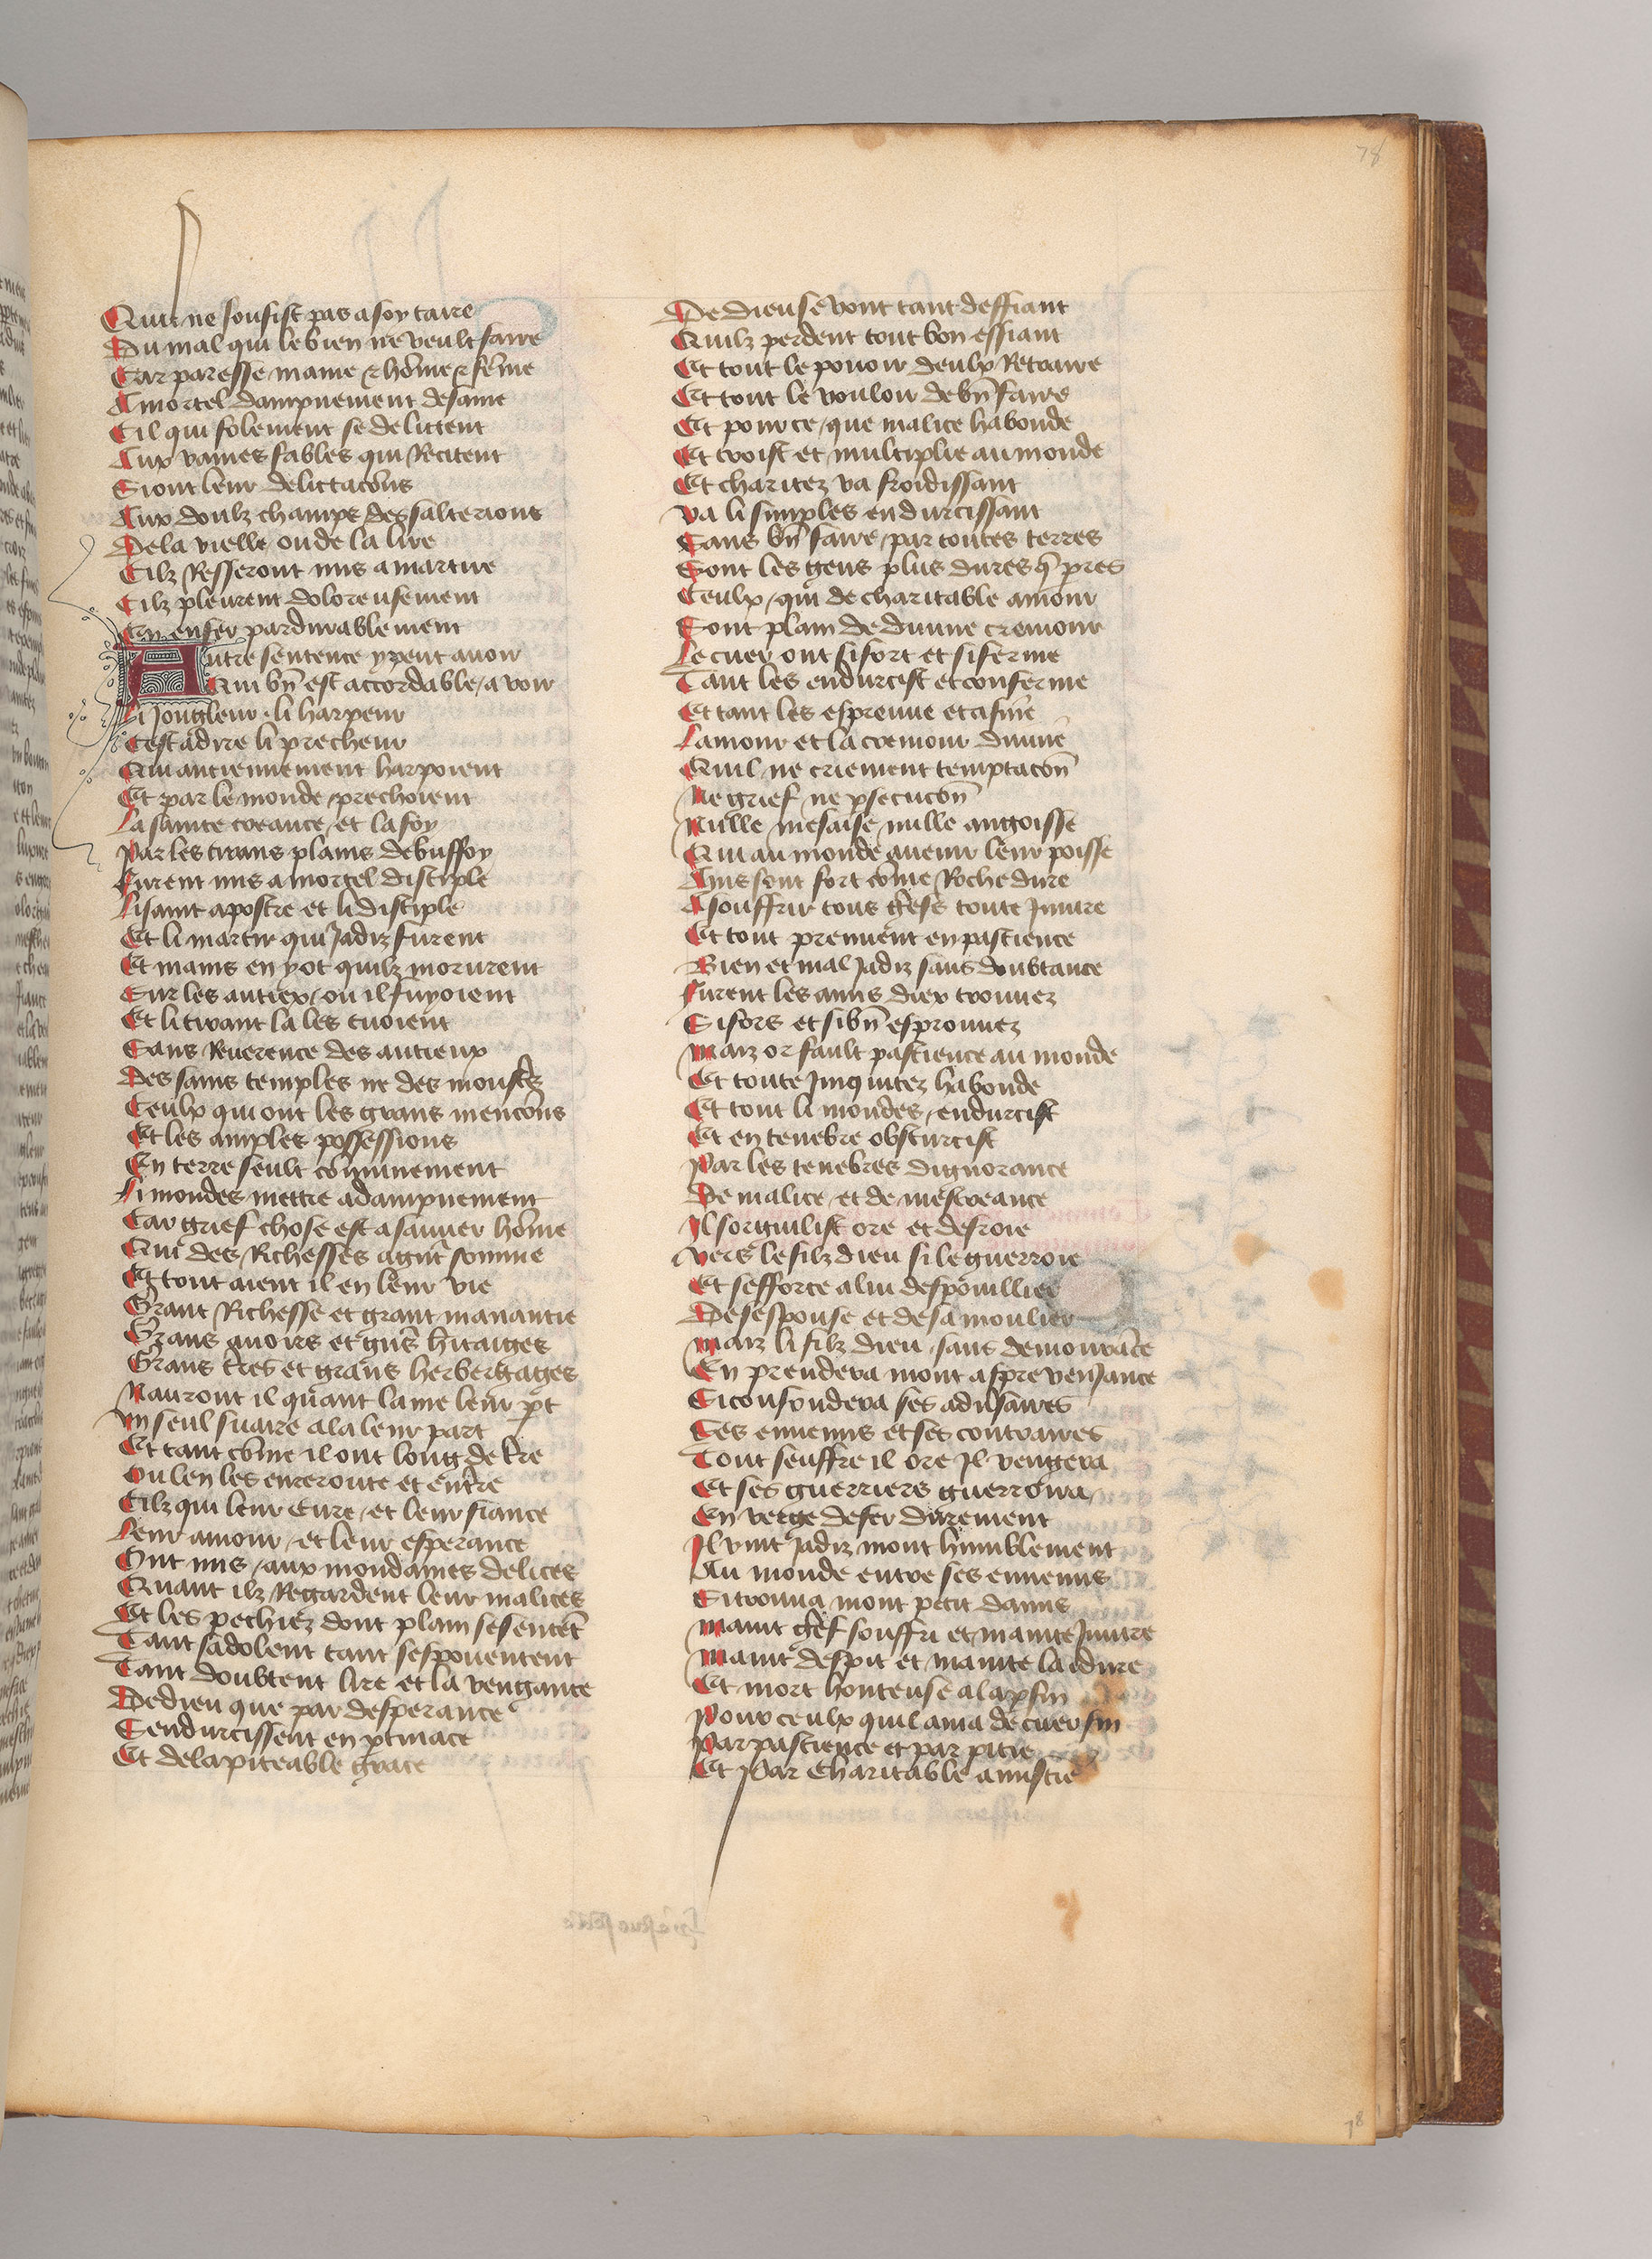 78
Qui ne souffist pas a soy taire
Du mal qui le bien ne veult faire
Car paresse maine & hom̄e & fem̄e
A mortel dampnement de same
Cil qui folement se delittent
Aux vaines fables qui Recitent
Si ont leur delittacōns
Aux doulz champs des salterions
De la vielle ou de la lire
Cilz Resseront mis a martire
Cilz pleurent dolereusement
En enfer pardurablement
Autre sentence y peut auoir
Qui bn̄ est accordable a voir
Li Jougleur li harpeur
Cest adire li precheur
Qui anciennement harpoient
Et par le monde prechoient
La sainte creance et la foy
Par les tirans plains de buffoy
Furent mis a mortel disciple
Li saint apostre et li disciple
Et li martir qui Jadiz furent
Et mains en y ot quilz morurent
Sur les autiex ou il fuyoient
Et li tirant la les tuoient
Sans Reuerence des autieux
Des sains temples ne des moustrez
Ceulx qui ont les grans mencōns
Et les amples possessions
En terre seult com̄unement
Li mondes mettre a dampnement
Car grief chose est a sauuer hom̄e
Qui des Richesses a gn̄t somme
Et tout aient il en leur vie
Grant Richesse et grant manantie
Grans auoirs et gn̄s hitaiges
Grans tr̄es et grans herbergages
Nauront il quant lame leur pt
Un seul suaire a la leur part
Et tant com̄e il ont long de tr̄e
Ou len les enveroute et entr̄e
Cilz qui leur Cure et leur fiance
Leur amour et leur esperance
Ont mis aux mondaines delices
Quant ilz Regardent leur malices
Et les pechiez dont plain se sentēt
Tant sadolent tant sespouentent
Tant doubtent lire et la vengance
De dieu que par desperance
Sendurcissent en ptinace
Et de la piteable grace
De dieu se vont tant deffiant
Quilz perdent tout bon essiant
Et tout le pouoir deulx Retraire
Et tout le vouloir de bn̄ faire
Et pour ce que malice habonde
Et croist et multiplie au monde
Et charitez va froidissant
Va li simples endurcissant
Sans bn̄ faire par toutes terres
Sont les gens plus dures q̄ pres
Ceulx qui de charitable amour
Sont plain de diuine cremour
Le cuer ont si fort et si ferme
Tant les endurcist et conferme
Et tant les espreuue et afine
Lamour et la cremour diuine
Quil ne criement temptacōn
Ne grief ne psecucōn
Nulle mesaise nulle angoisse
Qui au monde auenir leur poisse
Ains sont fort com̄e Roche dure
A souffrir tous gr̄fs toute Iniure
Et tout prennent en pascience
Bien et mal Jadiz sans doubtance
Furent les amis diex trouuez
Si fors et si bn̄ esprouuez
Maiz or fault pascience au monde
Et toute Iniquitez habonde
Et tout li mondes endurcist
Et en tenebre obscurcist
Par les tenebres dignorance
De malice et de mescreance
Il sorguilist ore et desroie
Vers le filz dieu si le guerroie
Et sefforce a lui despouillier
De sespouse et de sa moulier
Maiz li filz dieu sans demourāce
En prendera mont aspre venJance
Si confondera ses adusaires
Ses ennemis et ses contraires
Tout seuffre il ore Il vengera
Et ses guerriers guerroiera
En verge de fer durement
Il vint Jadiz mont humblement
Au monde entre ses ennemis
Si trouua mont petit damis
Maint gr̄ef souffri et mainte Iniure
Maint despit et mainte laidure
Et mort honteuse a la pfin
Pour ceulx quil ama de cuer fin
Par pascience et par pitie
Et par Charitable amistie
78